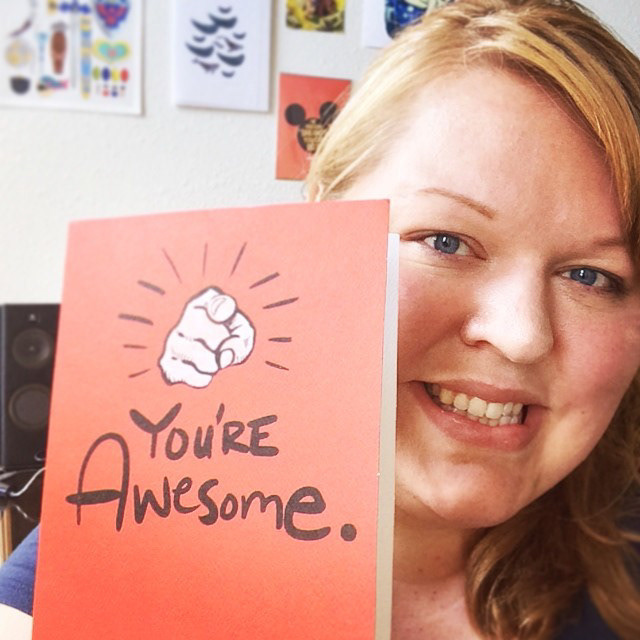 YOU'RE
AWESOME.